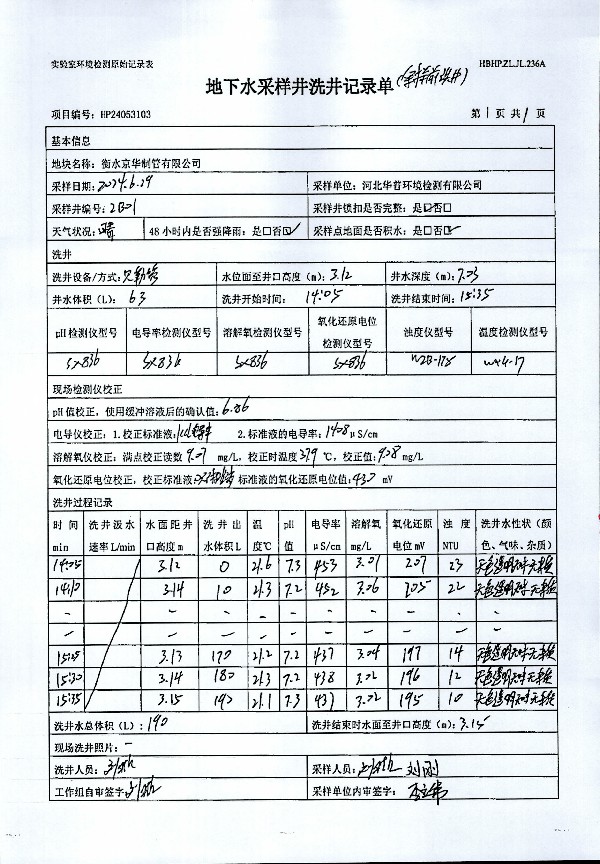 实验室环境检测原始记录表 HBHP.ZL.JL.236A
地下水采样井洗井记录单(采样前洗井)
项目编号：HP24053103 第1页 共1页
基本信息
地块名称：衡水京华制管有限公司
采样日期：2024.6.29 采样单位：河北华普环境检测有限公司
采样井编号：2B01 采样井锁扣是否完整：是☑否□
天气状况：晴 48小时内是否强降雨：是□否☑ 采样点地面是否积水：是□否☑
洗井
洗井设备/方式：贝勒管 水位面至井口高度（m）：3.12 井水深度（m）：7.03
井水体积（L）：63 洗井开始时间：14:05 洗井结束时间：15:35
pH检测仪型号 电导率检测仪型号 溶解氧检测仪型号 氧化还原电位检测仪型号 浊度仪型号 温度检测仪型号
SX836 SX836 SX836 SX836
现场检测仪校正
pH值校正，使用缓冲溶液后的确认值：6.86
电导仪校正：1.校正标准液： 2.标准液的电导率：1408μS/cm
溶解氧仪校正：满点校正读数 9.07 mg/L，校正时温度 ℃，校正值： mg/L
氧化还原电位校正，校正标准液： 标准液的氧化还原电位值：430 mV
洗井过程记录
时间min 洗井汲水速率L/min 水面距井口高度m 洗井出水体积L 温度℃ pH值 电导率μS/cm 溶解氧mg/L 氧化还原电位mV 浊度NTU 洗井水性状（颜色、气味、杂质）
14:05 3.12 0 21.6 7.3 453 3.01 207 23 无色透明无味无杂质
14:10 3.14 10 21.3 7.2 452 3.06 205 22 无色透明无味无杂质
- - - - - - - - - -
- - - - - - - - - -
15:25 3.13 170 21.2 7.2 437 3.04 197 14 无色透明无味无杂质
15:30 3.14 180 21.3 7.2 438 3.02 196 12 无色透明无味无杂质
15:35 3.15 190 21.1 7.3 437 3.02 195 10 无色透明无味无杂质
洗井水总体积（L）：190 洗井结束时水面至井口高度（m）：3.15
现场洗井照片：-
洗井人员： 采样人员： 刘刚
工作组自审签字： 采样单位内审签字：